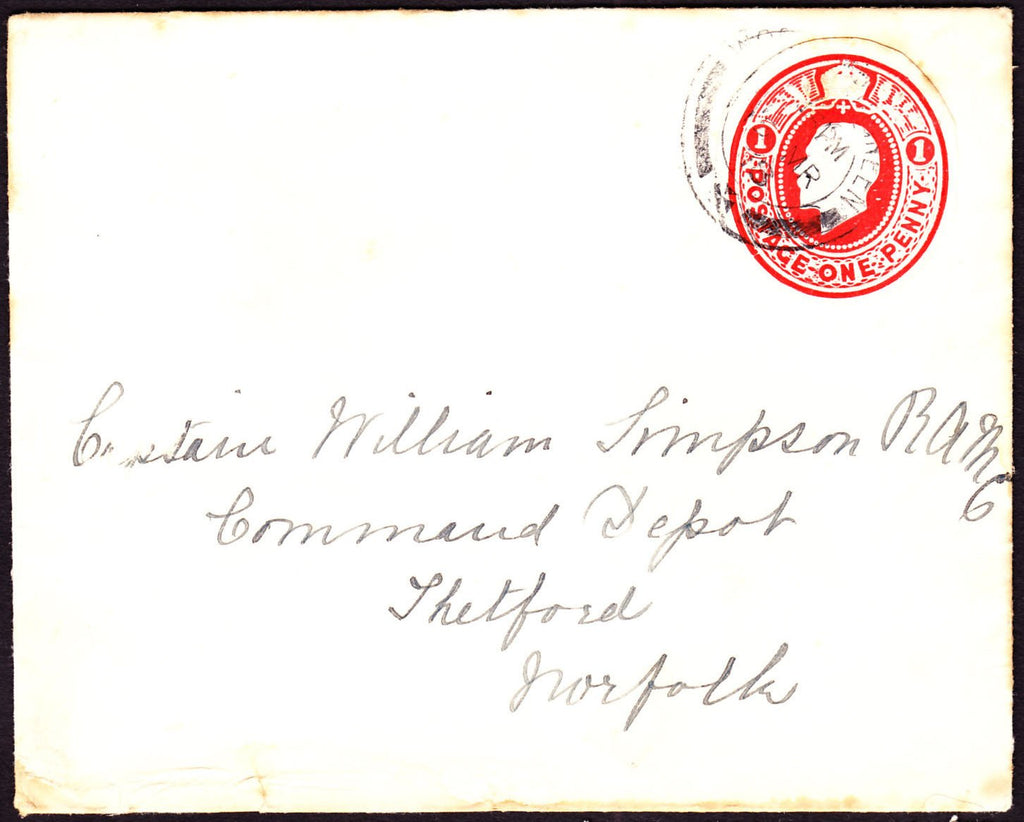 1 1
POSTAGE ONE PENNY
REEN
AM
Captain William Simpson R A M C
Command Depot
Thetford
Norfolk